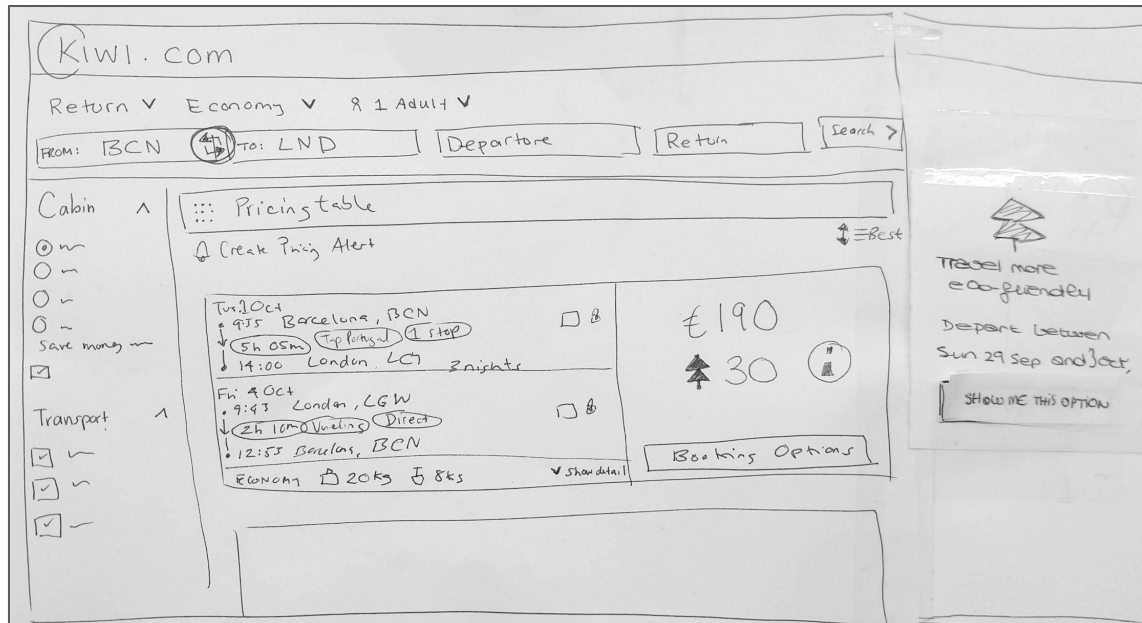 KIWI.com
Return Economy 1 Adult
FROM: BCN TO: LND Departore Return Search >
Cabin
Save money
Transport
Pricing table
Create Pricing Alert
Best
Tue. 1 Oct
9:55 Barcelona, BCN
5h 05m Tap Portugal 1 stop
14:00 London, LCY 3 nights
Fri 4 Oct
9:43 London, LGW
2h 10m Vueling Direct
12:55 Barcelona, BCN
ECONOMY 20kg 8kg Show detail
€190
30 i
Booking Options
Travel more
eco-friendly
Depart between
Sun 29 Sep and 3 Oct,
SHOW ME THIS OPTION